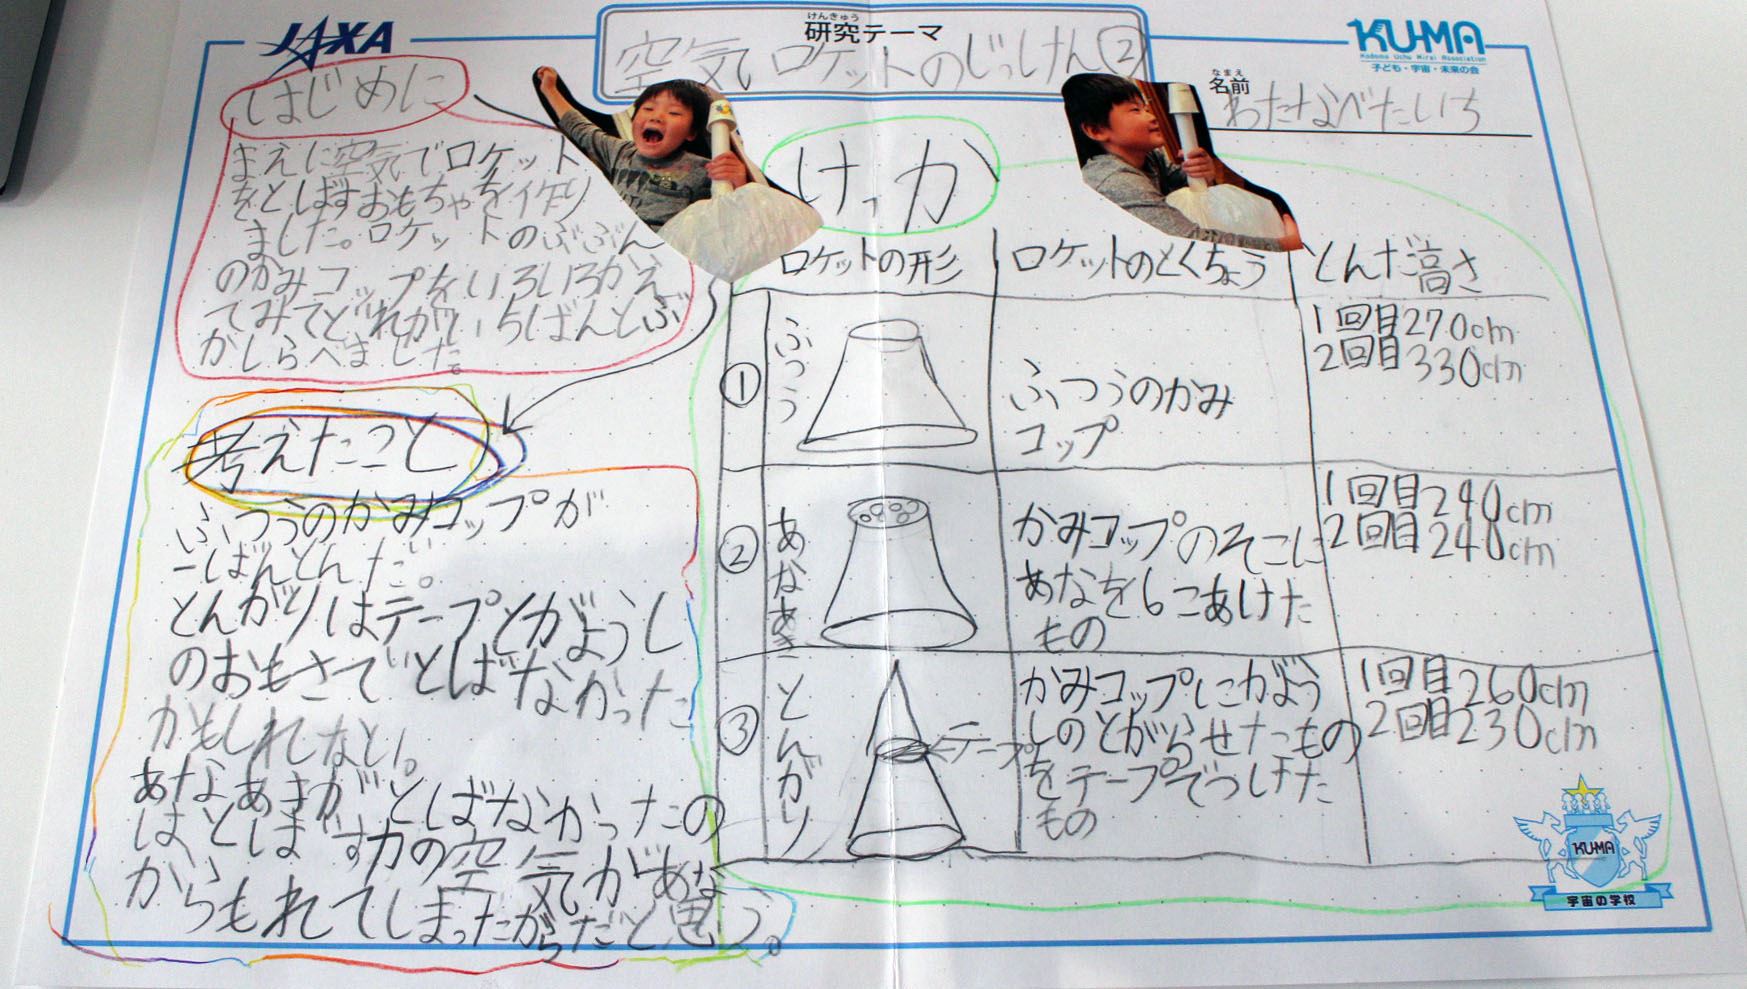 JAXA
けんきゅう
研究テーマ
空気ロケットのじっけん②
KU-MA
Kodomo Uchu Mirai Association
子ども・宇宙・未来の会
なまえ
名前
わたなべたいち
はじめに
まえに空気でロケット
をとばすおもちゃを作り
ました。ロケットのぶぶん
のかみコップをいろいろかえ
てみてどれがいちばんとぶ
かしらべました。
考えたこと
ふつうのかみコップが
一ばんとんだ。
とんがりはテープとがようし
のおもさでとばなかった
かもしれない。
あなあきがとばなかったの
はとばす力の空気があな
からもれてしまったからだと思う。
けっか
ロケットの形
ロケットのとくちょう
とんだ高さ
①
ふつう
ふつうのかみ
コップ
1回目270cm
2回目330cm
②
あなあき
かみコップのそこに
あなを6こあけた
もの
1回目240cm
2回目240cm
③
とんがり
←テープ
かみコップにがよう
しのとがらせたもの
をテープでつけた
もの
1回目260cm
2回目230cm
KU-MA
宇宙の学校